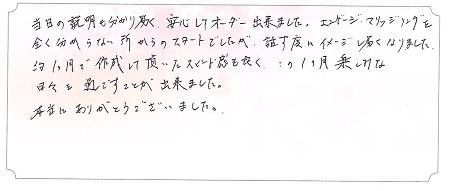 当日の説明も分かり易く、安心してオーダー出来ました。エンゲージ、マリッジリングを
全く分からない所からのスタートでしたが、話す度にイメージし易くなりました。
約1ヶ月で作成して頂いたスピード感も良く、この1ヶ月楽しみな
日々を過ごすことが出来ました。
本当にありがとうございました。